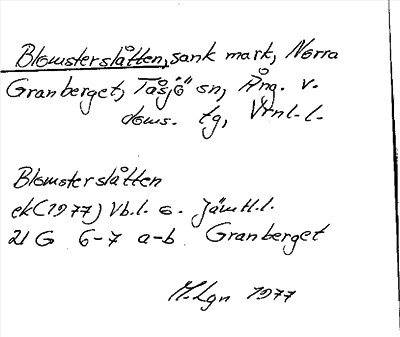 Blomsterslåtten, sank mark, Norra
Granberget, Tåsjö sn, Ång. v.
doms. tg, Vrnl.l.
Blomsterslåtten
ek(1977) Vb.l. o. Jämtl.l.
21 G 6-7 a-b Granberget
M.Lgn 1977